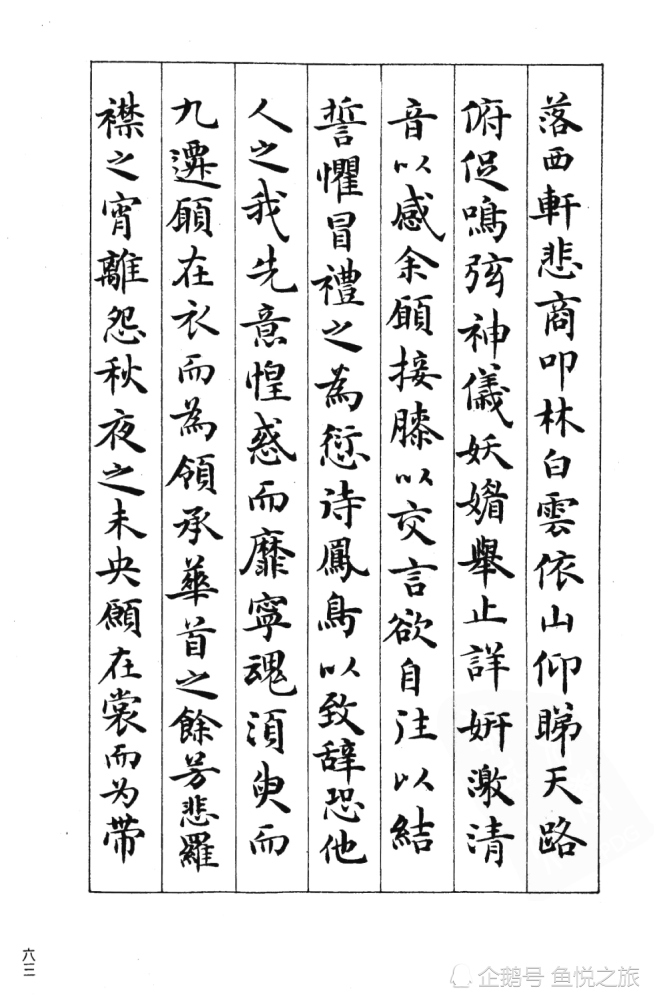 落西軒悲商叩林白雲依山仰睇天路
俯促鳴弦神儀妖媚舉止詳妍激清
音以感余願接膝以交言欲自往以結
誓懼冒禮之為愆待鳳鳥以致辞恐他
人之我先意惶惑而靡寧魂須臾而
九遷願在衣而為領承華首之餘芳悲羅
襟之宵離怨秋夜之未央願在裳而为帶
六三
企鹅号 鱼悦之旅